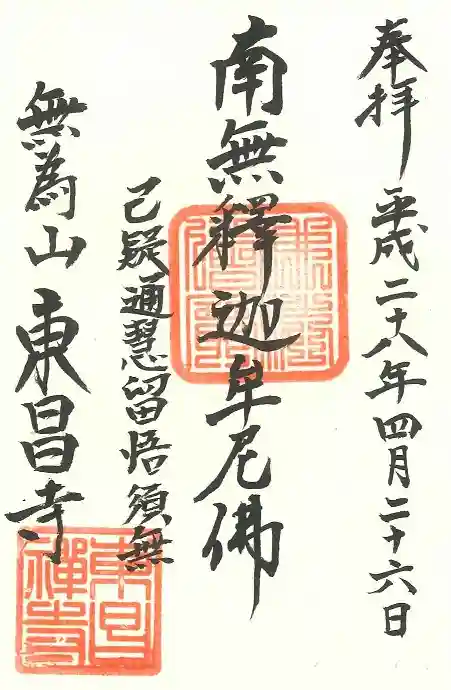 奉拝 平成二十八年四月二十六日
南無釋迦牟尼佛
己疑通慧留悟須無
無為山 東昌寺
東昌
禅寺